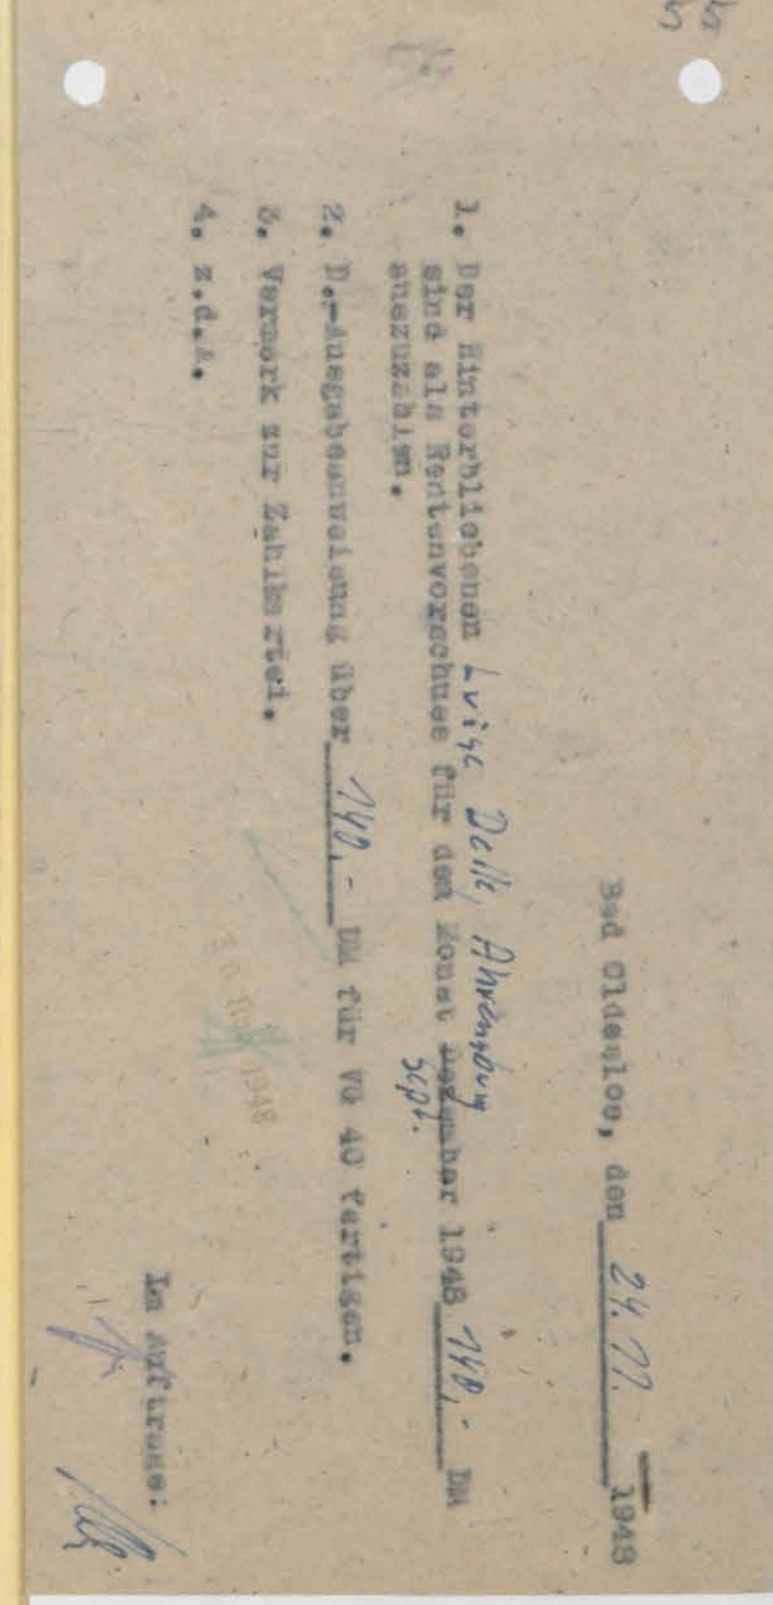 Bad Oldesloe, den 24. 11. 1948
1. Der Hinterbliebenen Luise Delle, Ahrensburg
sind als Rentenvorschuss für den Monat Dezember Sept. 1948 140,- DM
auszuzahlen.
2. D.-Ausgabeanweisung über 140,- DM für VG 40 fertigen.
3. Vermerk zur Zahlkartei.
4. z.d.A.
1948
Im Auftrage: